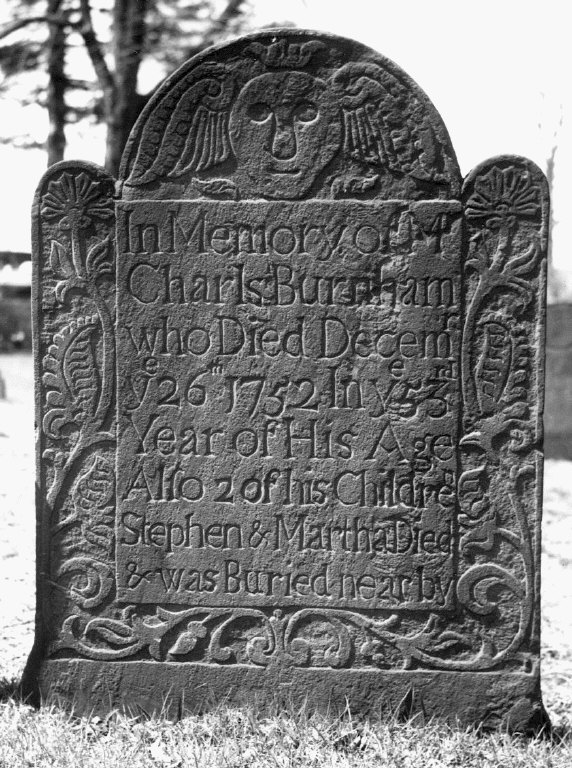 In Memory of Mʳ
Charls Burnham
who Died Decemʳ
yᵉ 26ᵗʰ 1752 In yᵉ 53ʳᵈ
Year of His Age
Also 2 of his Childrᵉ
Stephen & Martha Died
& was Buried near by